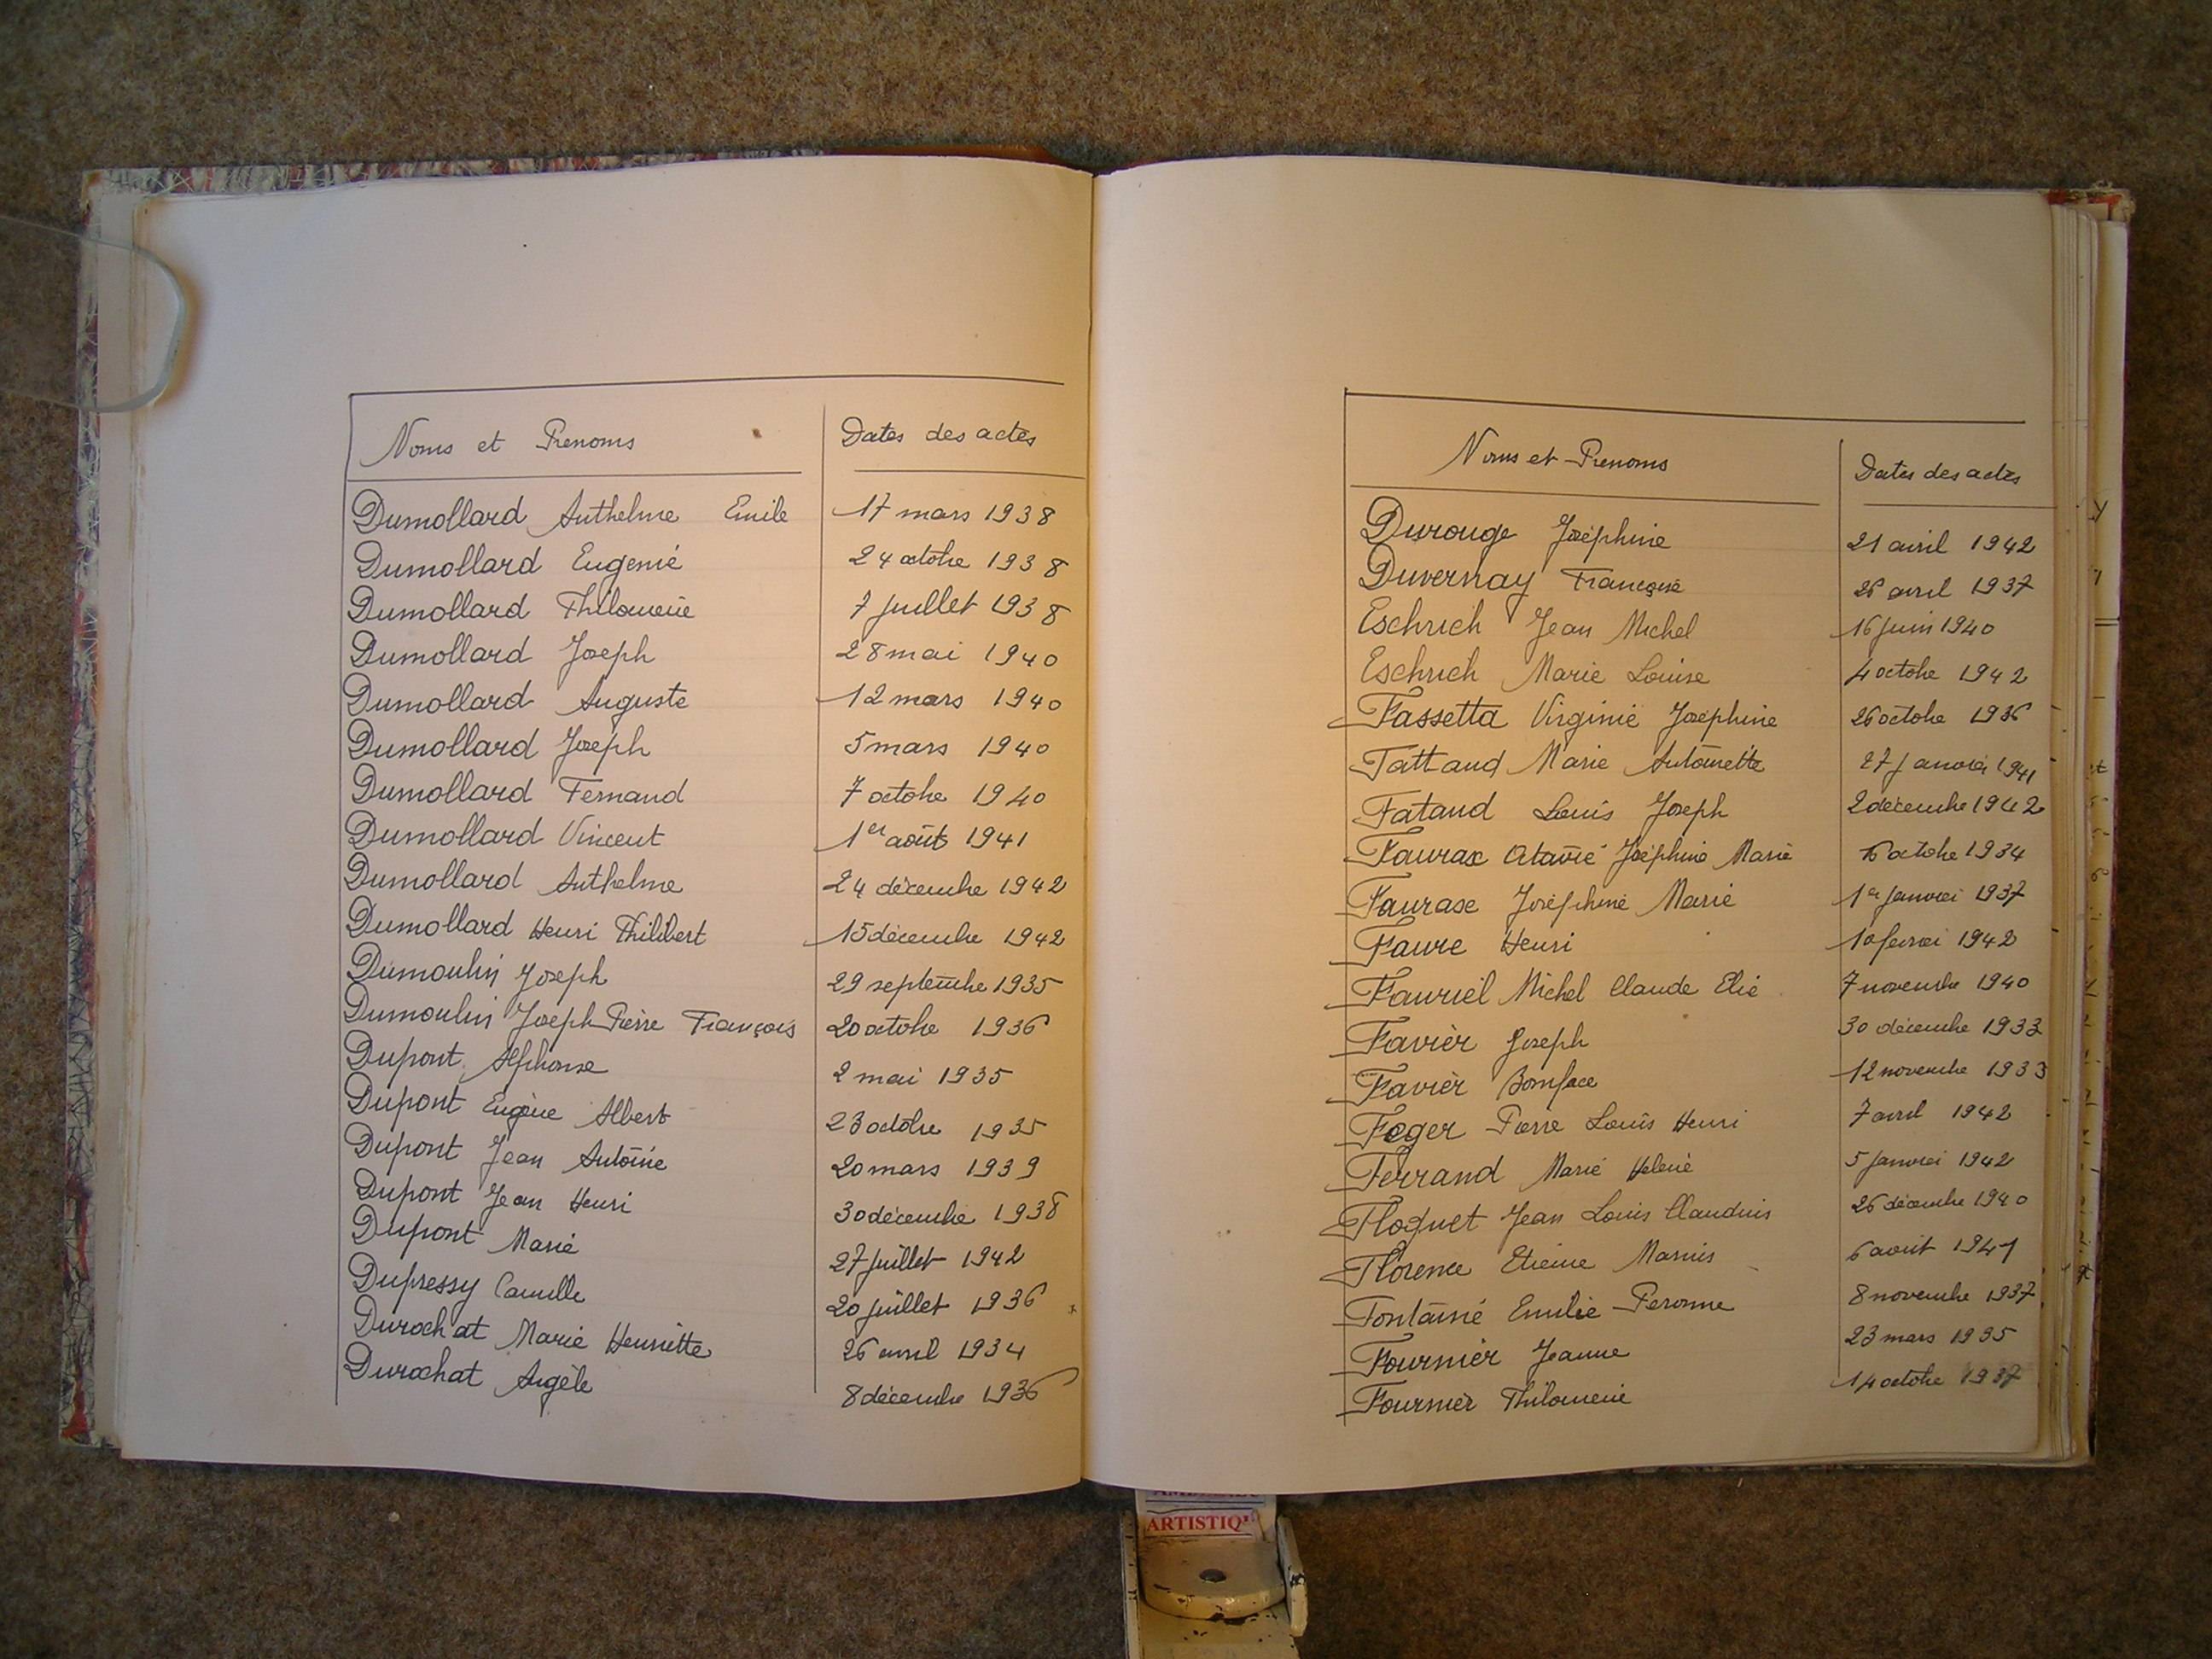 Noms et Prenoms Dates des actes
Dumollard Anthelme Emile 17 mars 1938
Dumollard Eugenie 24 octobre 1938
Dumollard Philomene 7 juillet 1938
Dumollard Joseph 28 mai 1940
Dumollard Auguste 12 mars 1940
Dumollard Joseph 5 mars 1940
Dumollard Fernand 7 octobre 1940
Dumollard Vincent 1er août 1941
Dumollard Anthelme 24 décembre 1942
Dumollard Henri Philibert 15 décembre 1942
Dumoulin Joseph 29 septembre 1935
Dumoulin Joseph Pierre François 20 octobre 1936
Dupont Alphonse 2 mai 1935
Dupont Eugène Albert 23 octobre 1935
Dupont Jean Antoine 20 mars 1939
Dupont Jean Henri 30 décembre 1938
Dupont Marie 27 juillet 1942
Dupressy Camille 20 juillet 1936
Durochat Marie Henriette 26 avril 1934
Durochat Angèle 8 décembre 1936
Noms et Prenoms Dates des actes
Durouge Joséphine 21 avril 1942
Duvernay Françoise 26 avril 1937
Eschrich Jean Michel 16 juin 1940
Eschrich Marie Louise 4 octobre 1942
Fassetta Virginie Joséphine 26 octobre 1936
Fattaud Marie Antoinette 27 janvier 1941
Fataud Louis Joseph 2 décembre 1942
Faurax Octavie Joséphine Marie octobre 1934
Faurax Joséphine Marie 1er janvier 1937
Faure Henri 10 fevrier 1942
Fauriel Michel Claude Elie 7 novembre 1940
Favièr Joseph 30 décembre 1933
Favièr Boniface 12 novembre 1933
Feger Pierre Louis Henri 7 avril 1942
Ferrand Marie Helene 5 janvier 1942
Floquet Jean Louis Claudius 26 décembre 1940
Florence Etienne Marius 6 août 1941
Fontaine Emilie Peronne 8 novembre 1937
Fournièr Jeanne 23 mars 1935
Fournièr Philomene 14 octobre 1937
ARTISTIQ